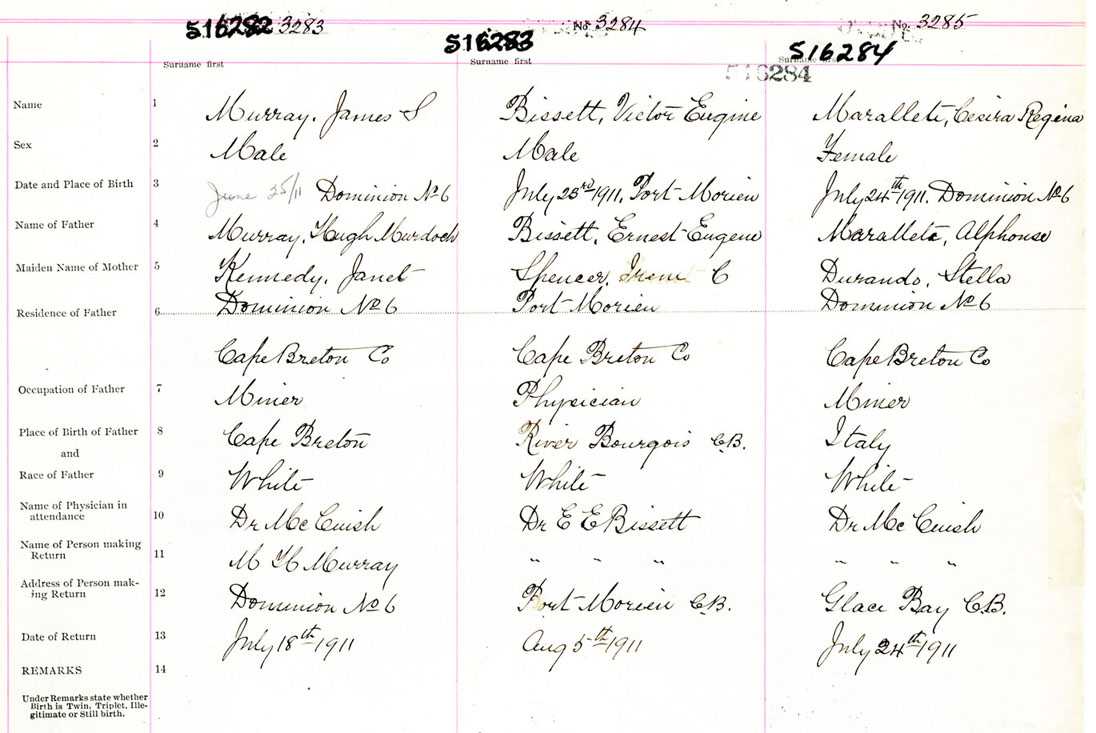 516282 3283 No. 3284 No. 3285
516283 516284
516284
Surname first Surname first Surname first
Name 1 Murray, James S Bissett, Victor Eugine Marallete, Cesira Regina
Sex 2 Male Male Female
Date and Place of Birth 3 June 25/11 Dominion No 6 July 23rd 1911, Port Morien July 24th 1911. Dominion No 6
Name of Father 4 Murray, Hugh Murdoch Bissett, Ernest Eugene Marallete, Alphonse
Maiden Name of Mother 5 Kennedy, Janet Spencer, Irene C Durando, Stella
Residence of Father 6 Dominion No 6 Port Morien Dominion No 6
Cape Breton Co Cape Breton Co Cape Breton Co
Occupation of Father 7 Miner Physician Miner
Place of Birth of Father 8 Cape Breton River Bourgois C.B. Italy
and
Race of Father 9 White White White
Name of Physician in
attendance 10 Dr McCuish Dr E E Bissett Dr McCuish
Name of Person making
Return 11 M H Murray " " " " " "
Address of Person mak-
ing Return 12 Dominion No 6 Port Morien C.B. Glace Bay C.B.
Date of Return 13 July 18th 1911 Aug 5th 1911 July 24th 1911
REMARKS 14
Under Remarks state whether
Birth is Twin, Triplet, Ille-
gitimate or Still birth.